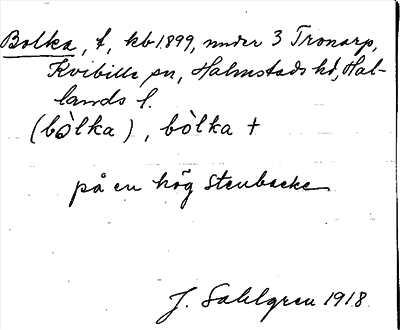 Bolka, t, kb 1899, under 3 Tronarp,
Kvibille sn, Halmstads hd, Hal-
lands l.
(bòlka), bòlka +
på en hög stenbacke
J. Sahlgren 1918.